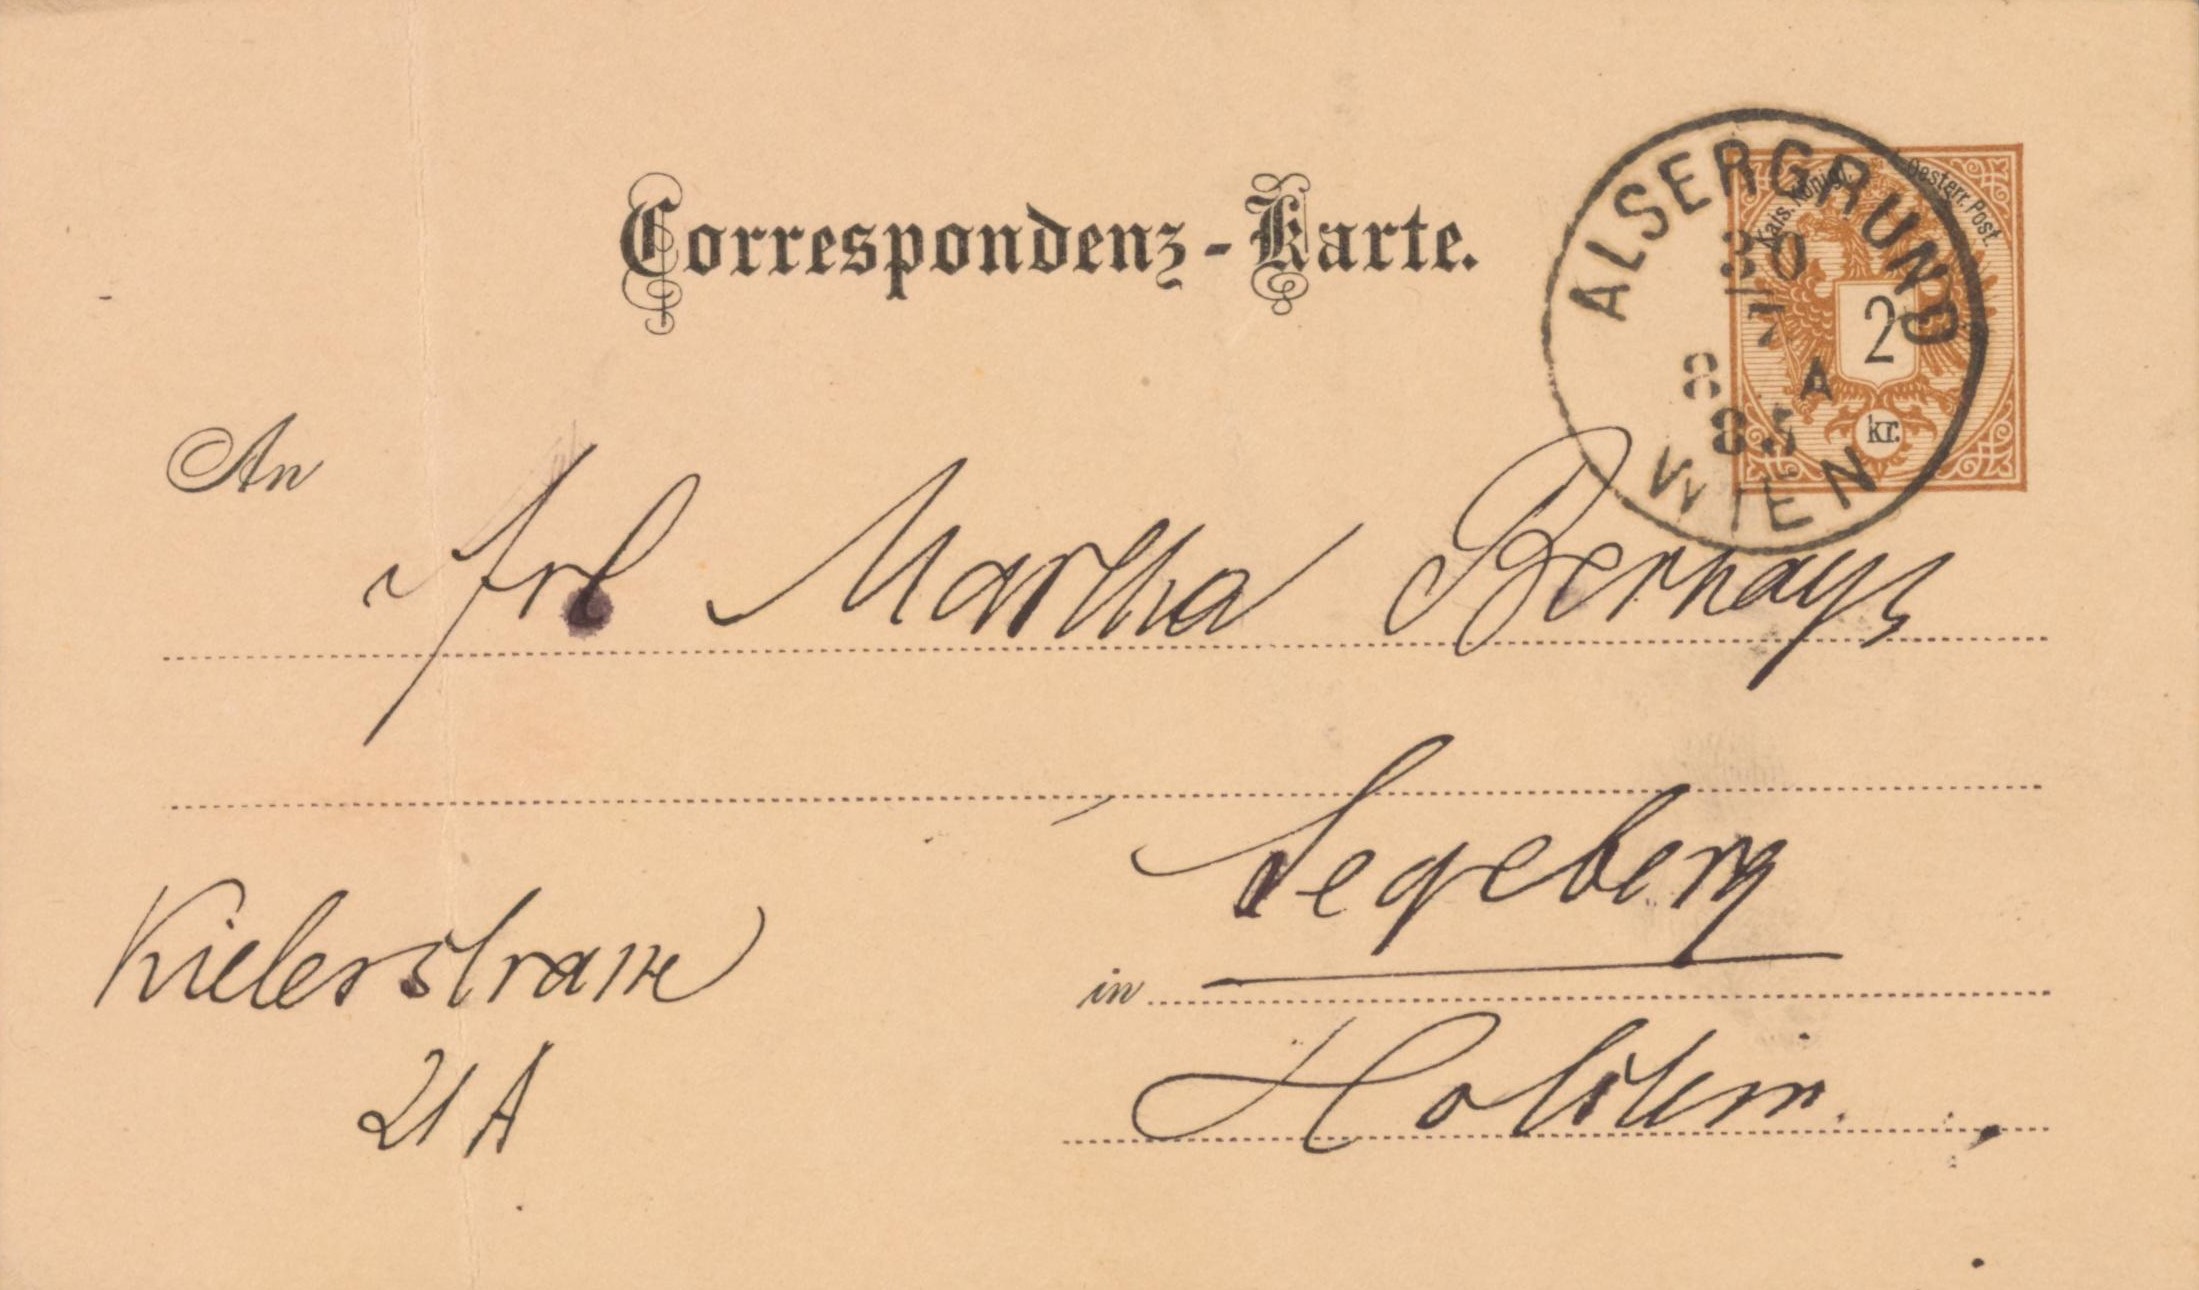 Correspondenz-Karte.
Kais. Königl. Oesterr. Post.
2
kr.
ALSERGRUND
30
8 A
85
WIEN
An
Frl Martha Bernays
Segeberg
in
Kielerstrasse
21A
Holstein.